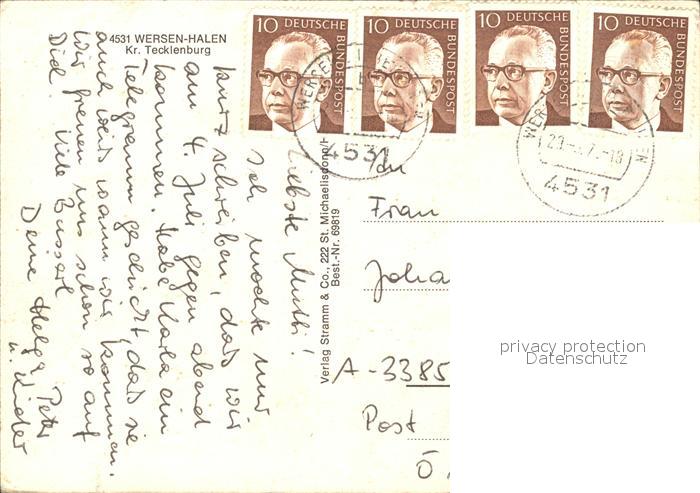 4531 WERSEN-HALEN
Kr. Tecklenburg
10 DEUTSCHE BUNDESPOST
10 DEUTSCHE BUNDESPOST
10 DEUTSCHE BUNDESPOST
10 DEUTSCHE BUNDESPOST
4531
4531
Liebste Mutti!
Ich möchte nur
kurz schreiben, daß wir
am 4. Juli gegen abend
kommen. Habe Karla ein
Telegramm geschickt, daß sie
auch weiß wann wir kommen.
Wir freuen uns schon so auf
Dich. Viele Busserl
Deine Helga Peter
u. Kinder
Verlag Stramm & Co., 222 St. Michaelisdonn/H
Best.-Nr. 69819
An
Frau
Joha
A-3385
Post
Ö
privacy protection
Datenschutz